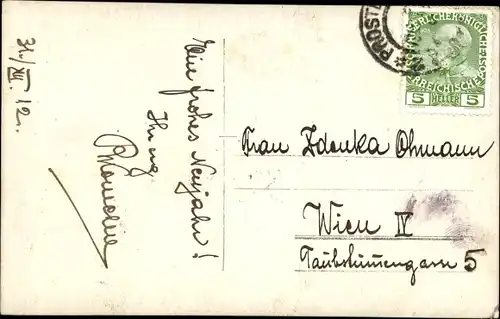 31/XII. 12.
Ein frohes Neujahr!
Ihr
Frau Zdenka Ohmann
Wien IV
Taubstummengasse 5
PROST
KAISERLICHE KÖNIGLICHE
ÖSTERREICHISCHE POST
5 HELLER 5